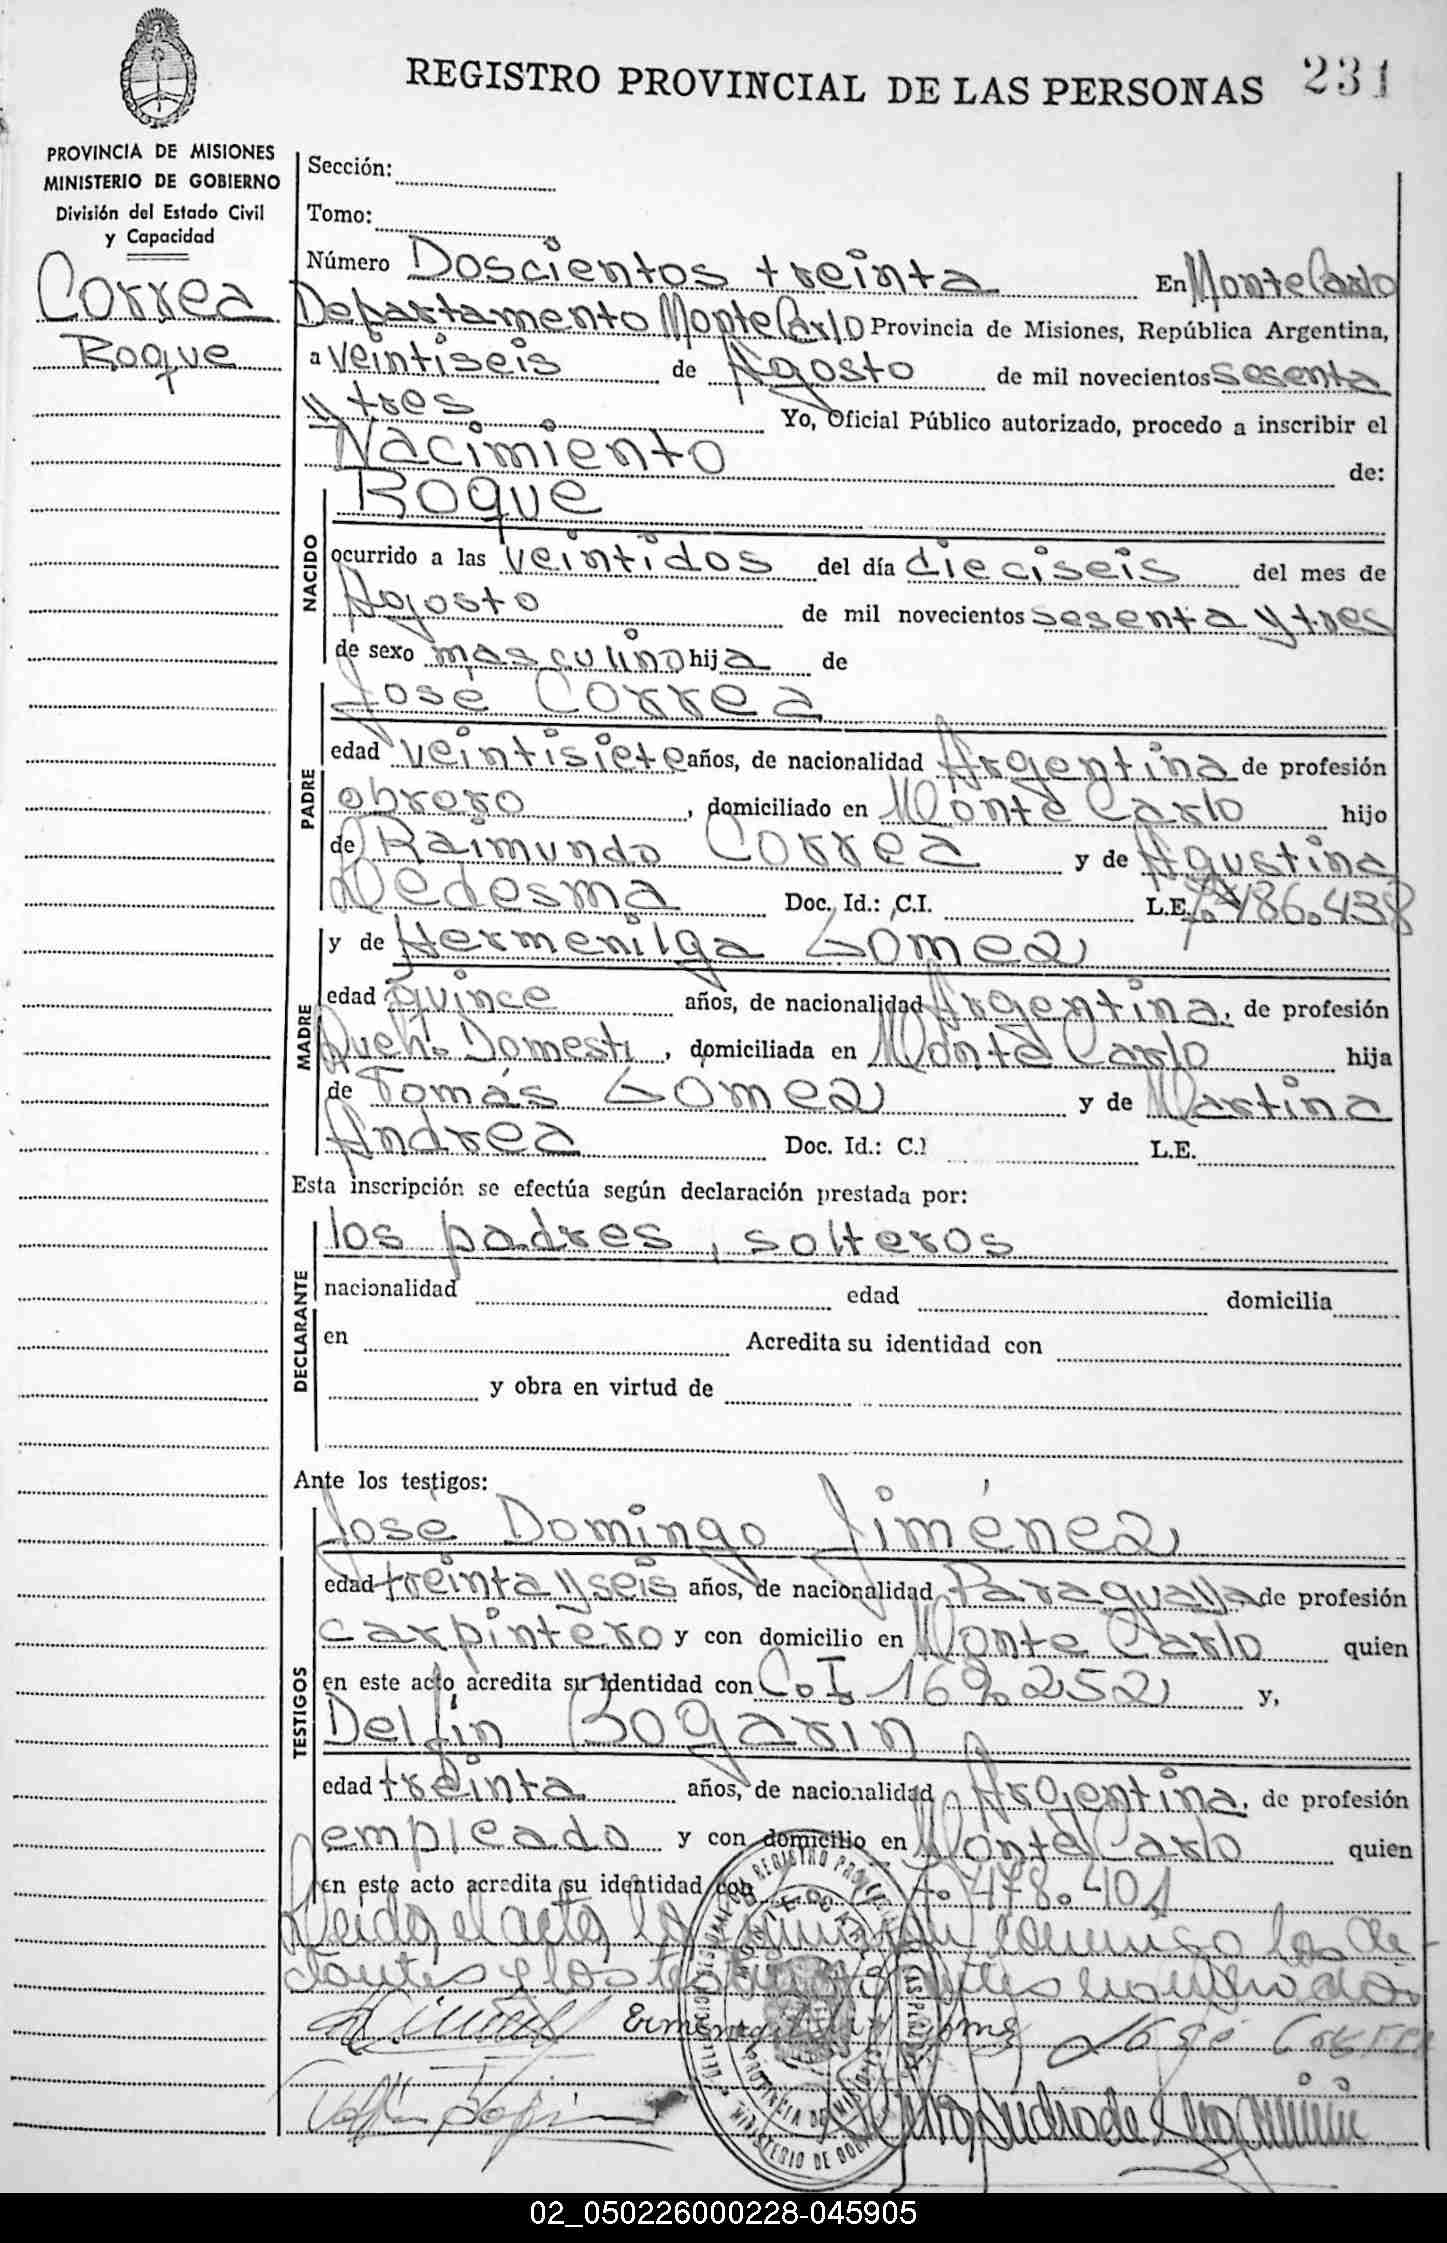 REGISTRO PROVINCIAL DE LAS PERSONAS 231
PROVINCIA DE MISIONES
MINISTERIO DE GOBIERNO
División del Estado Civil
y Capacidad
Correa
Roque
Sección:
Tomo:
Número Doscientos treinta En Monte Carlo
Departamento Monte Carlo Provincia de Misiones, República Argentina,
a veintiseis de Agosto de mil novecientos sesenta
y tres Yo, Oficial Público autorizado, procedo a inscribir el
Nacimiento de:
Roque
NACIDO
ocurrido a las veintidos del día dieciseis del mes de
Agosto de mil novecientos sesenta y tres
de sexo masculino hija de
José Correa
PADRE
edad veintisiete años, de nacionalidad Argentina de profesión
obrero, domiciliado en Monte Carlo hijo
de Raimundo Correa y de Agustina
Ledesma Doc. Id.: C.I. L.E. 7.486.438
y de Hermenilga Gómez
MADRE
edad quince años, de nacionalidad Argentina, de profesión
Queh. Domest, domiciliada en Monte Carlo hija
de Tomás Gómez y de Martina
Andrea Doc. Id.: C.I L.E.
Esta inscripción se efectúa según declaración prestada por:
los padres, solteros
DECLARANTE
nacionalidad edad domicilia
en Acredita su identidad con
y obra en virtud de
Ante los testigos:
José Domingo Jiménez
TESTIGOS
edad treinta y seis años, de nacionalidad Paraguaya de profesión
carpintero y con domicilio en Monte Carlo quien
en este acto acredita su identidad con C.I. 169.252 y,
Delfín Bogarin
edad treinta años, de nacionalidad Argentina, de profesión
empleado y con domicilio en Monte Carlo quien
en este acto acredita su identidad con 7.478.401
Leida el acta la conmigo los de
y los
José Correa
02_050226000228-045905